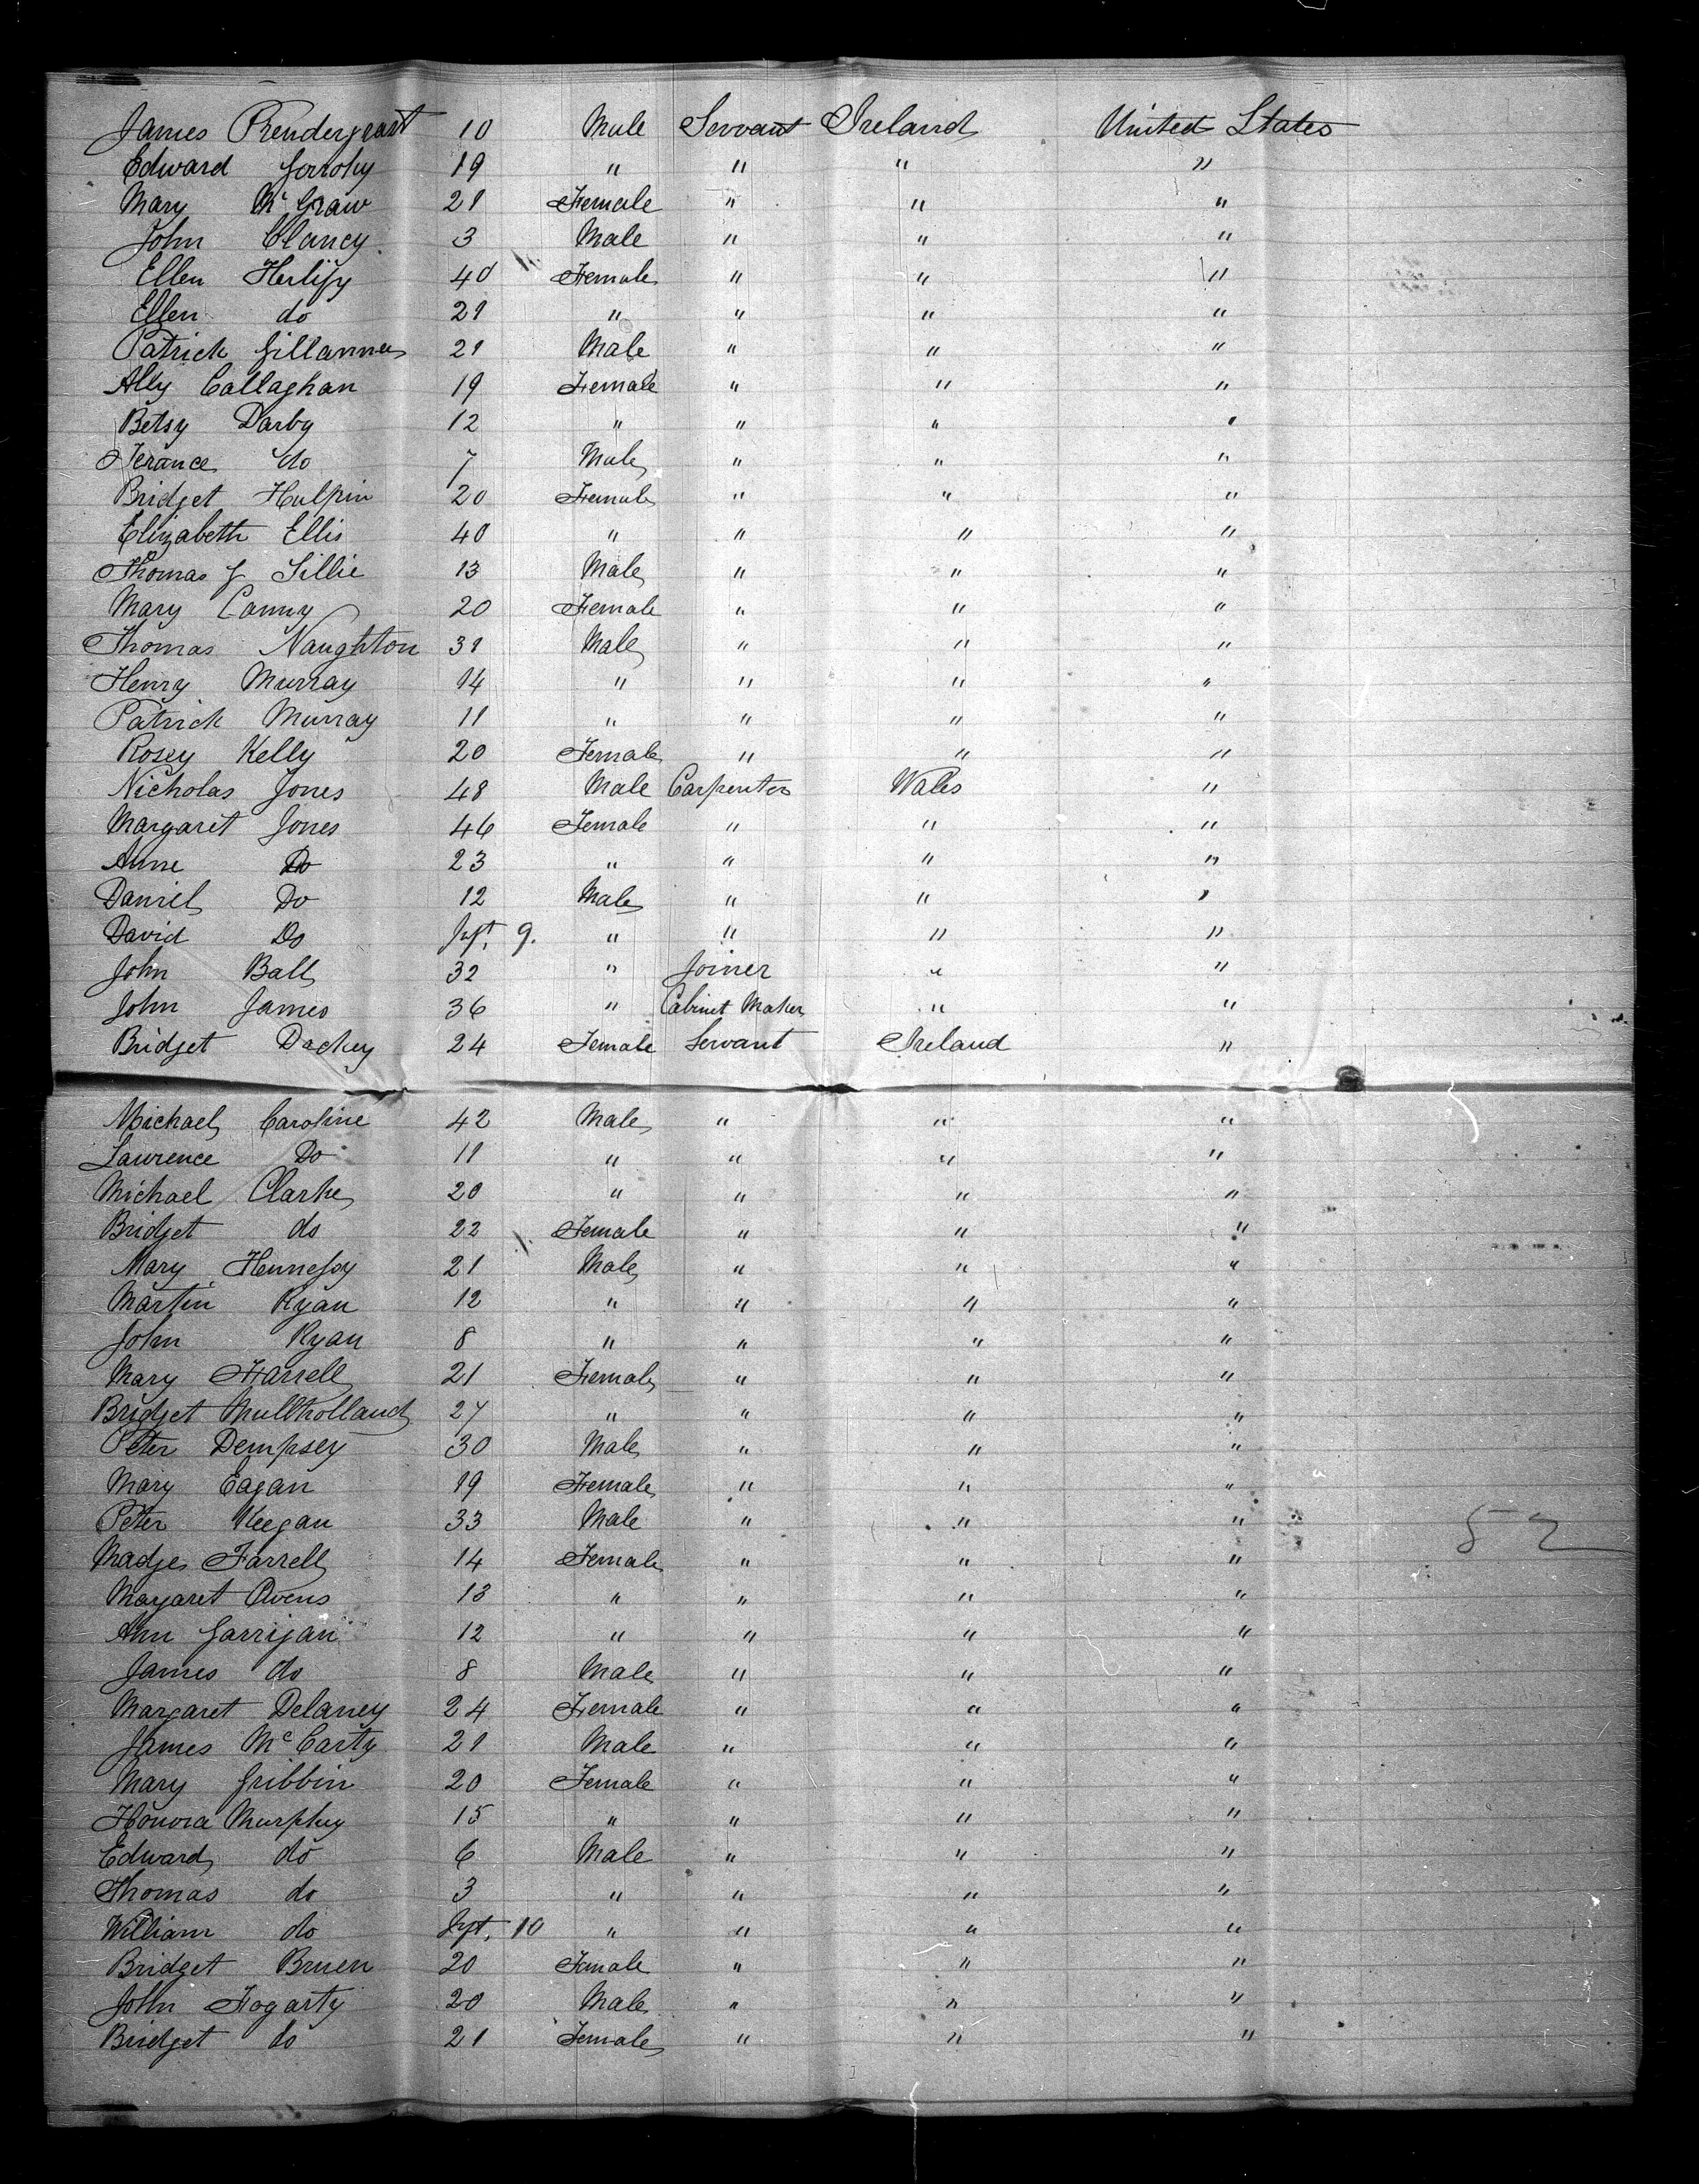 James Prendergrast 10 Male Servant Ireland United States
Edward Gorrohy 19 " " " "
Mary McGraw 21 Female " " "
John Clancy 3 Male " " "
Ellen Herlify 40 Female " " "
Ellen do 21 " " " "
Patrick 21 Male " " "
Ally Callaghan 19 Female " " "
Betsy Darby 12 " " " "
Terance do 7 Male " " "
Bridget Halpin 20 Female " " "
Elizabeth Ellis 40 " " " "
Thomas J Lillie 13 Male " " "
Mary Canny 20 Female " " "
Thomas Naughton 31 Male " " "
Henry Murray 14 " " " "
Patrick Murray 11 " " " "
Rosey Kelly 20 Female " " "
Nicholas Jones 48 Male Carpenter Wales "
Margaret Jones 46 Female " " "
Anne Do 23 " " " "
Daniel Do 12 Male " " "
David Do Jnft. 9. " " " "
John Ball 32 " Joiner " "
John James 36 " Cabinet Maker " "
Bridget Dackey 24 Female Servant Ireland "
Michael Caroline 42 Male " " "
Lawrence Do 11 " " " "
Michael Clarke 20 " " " "
Bridget do 22 Female " " "
Mary Hennessy 21 Male " " "
Martin Ryan 12 " " " "
John Ryan 8 " " " "
Mary Farrell 21 Female " " "
Bridget Mullholland 27 " " " "
Peter Dempsey 30 Male " " "
Mary Eagan 19 Female " " "
Peter Keegan 33 Male " " "
52
Madge Farrell 14 Female " " "
Margaret Owens 13 " " " "
Ann Garrigan 12 " " " "
James do 8 Male " " "
Margaret Delaney 24 Female " " "
James McCarty 21 Male " " "
Mary Gribbin 20 Female " " "
Honora Murphy 15 " " " "
Edward do 6 Male " " "
Thomas do 3 " " " "
William do Jnft. 10 " " " "
Bridget Bruen 20 Female " " "
John Fogarty 20 Male " " "
Bridget do 21 Female " " "